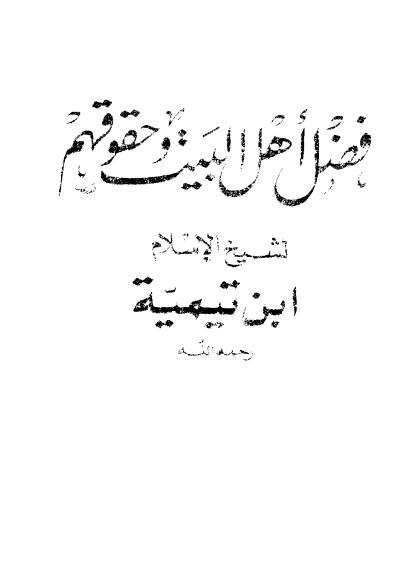 فضل أهل البيت وحقوقهم
لشيخ الإسلام
ابن تيمية
رحمه الله